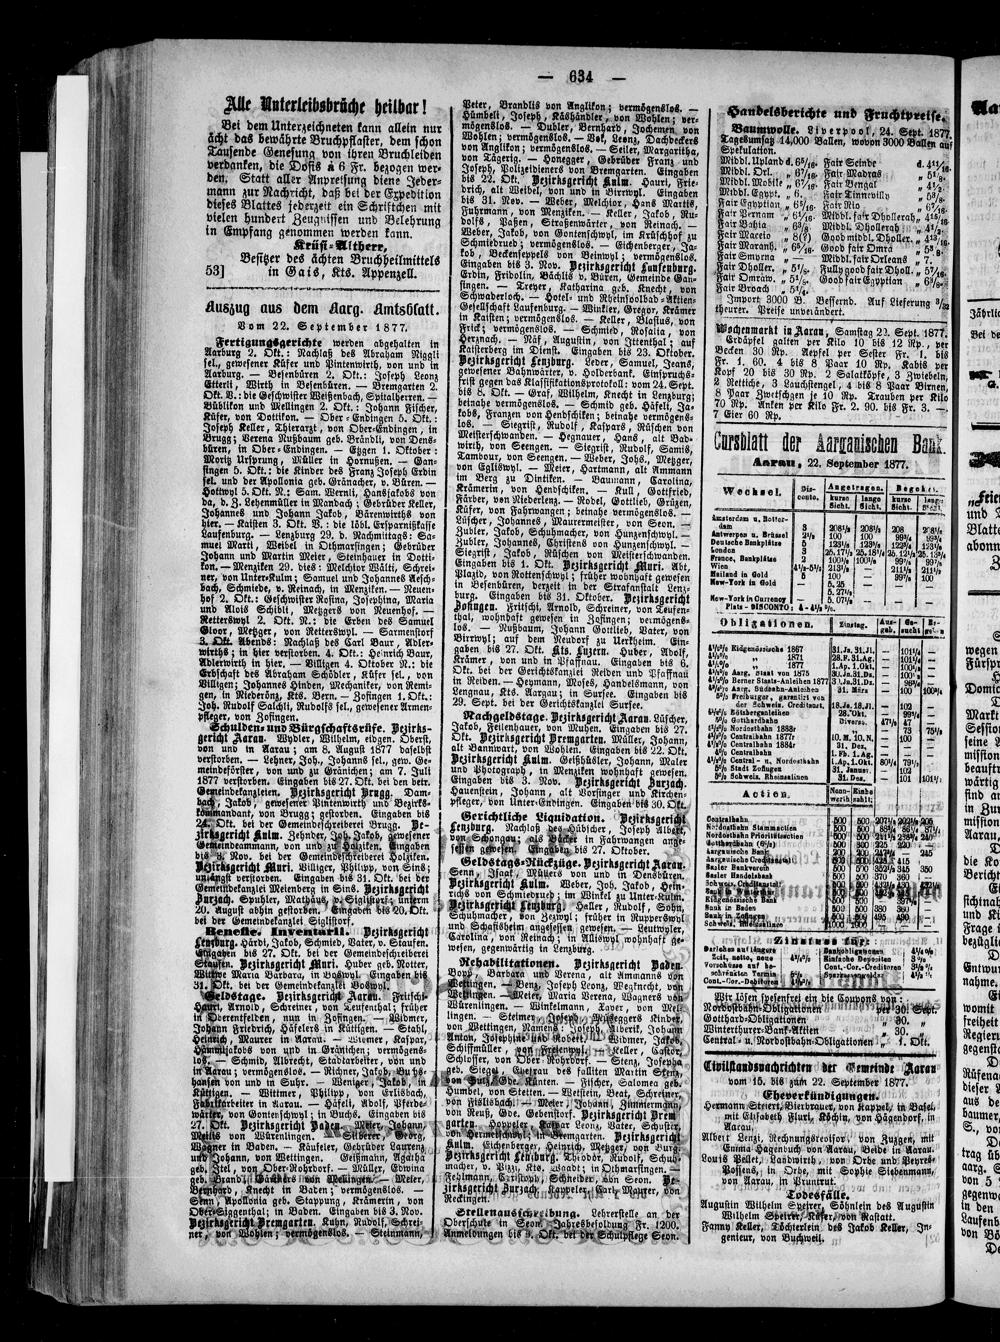 — 634 —
Alle Unterleibsbrüche heilbar!
Bei dem Unterzeichneten kann allein nur
ächt das bewährte Bruchpflaster, dem schon
Tausende Genesung von ihren Bruchleiden
verdanken, die Dosis à 6 Fr. bezogen wer-
den. Statt aller Anpreisung diene Jeder-
mann zur Nachricht, daß bei der Expedition
dieses Blattes jederzeit ein Schriftchen mit
vielen hundert Zeugnissen und Belehrung
in Empfang genommen werden kann.
Krüsi-Altherr,
Besitzer des ächten Bruchheilmittels
53] in Gais, Kts. Appenzell.
Auszug aus dem Aarg. Amtsblatt.
Vom 22. September 1877.
Fertigungsgerichte werden abgehalten in
Aarburg 2. Okt.: Nachlaß des Abraham Niggli
sel., gewesener Küfer und Pintenwirth, von und in
Aarburg. — Besenbüren 2. Okt.: Joseph Leonz
Etterli, Wirth in Besenbüren. — Bremgarten 2.
Okt. V.: die Geschwister Weißenbach, Spitalherren. —
Büblikon und Mellingen 2. Okt.: Johann Fischer,
Küfer, von Dottikon. — Ober-Endingen 5. Okt.:
Joseph Keller, Thierarzt, von Ober-Endingen, in
Brugg; Verena Nußbaum geb. Brändli, von Dens-
büren, in Ober-Endingen. — Etzgen 1. Oktober:
Moritz Ursprung, Müller in Hornußen. — Gan-
singen 5. Okt.: die Kinder des Franz Joseph Erdin
sel. und der Apollonia geb. Gränacher, v. Büren. —
Hottwyl 5. Okt. N.: Sam. Wernli, Hansjakobs von
da, d. Z. Lehenmüller in Mandach; Gebrüder Keller,
Johannes und Johann Jakob, Bärenwirths von
hier. — Kaisten 3. Okt. V.: die löbl. Ersparnißkasse
Laufenburg. — Lenzburg 29. d. Nachmittags: Sa-
muel Marti, Weibel in Othmarsingen; Gebrüder
Johann und Martin Meier, Steinhauer in Dotti-
kon. — Menziken 29. dies: Melchior Wälti, Schrei-
ner, von Unter-Kulm; Samuel und Johannes Aesch-
bach, Schmiede, v. Reinach, in Menziken. — Neuen-
hof 2. Okt.: Geschwister Rosina, Josephina, Maria
und Alois Schibli, Metzgers von Neuenhof. —
Retterswyl 2. Okt. N.: die Erben des Samuel
Gloor, Metzger, von Retterswyl. — Sarmenstorf
3. Okt. Abends: Nachlaß des Carl Baur, Adler-
wirths; in hier verstorben. 4. Okt.: Heinrich Baur,
Adlerwirth in hier. — Villigen 4. Oktober N.: die
Erbschaft des Abraham Schödler, Küfer sel., von
Villigen; Johannes Hinden, Mechaniker, von Remi-
gen, in Niederönz, Kts. Bern. — Zofingen 1. Okt.:
Joh. Rudolf Salchli, Rudolfs sel., gewesener Armen-
pfleger, von Zofingen.
Schulden- und Bürgschaftsrüfe. Bezirks-
gericht Aarau. Wydler, Wilhelm, eidgen. Oberst,
von und in Aarau; am 8. August 1877 daselbst
verstorben. — Lehner, Joh., Johanns sel., gew. Ge-
meindeförster, von und zu Gränichen; am 7. Juli
1877 verstorben. Eingaben bis 27. Okt. bei den betr.
Gemeindekanzleien. Bezirksgericht Brugg. Dam-
bach, Jakob, gewesener Pintenwirth und Bezirks-
kommandant, von Brugg; gestorben. Eingaben bis
24. Okt. bei der Gemeindschreiberei Brugg. Be-
zirksgericht Kulm. Zehnder, Joh. Jakob, gewesener
Gemeindeammann, von und zu Holziken. Eingaben
bis 3. Nov. bei der Gemeindschreiberei Holziken.
Bezirksgericht Muri. Villiger, Philipp, von Sins;
unlängst verstorben. Eingaben bis 31. Okt. bei der
Gemeindekanzlei Meienberg in Sins. Bezirksgericht
Zurzach. Spuhler, Mathäus, v. Siglistorf; unterm
20. August abhin gestorben. Eingaben bis 20. Okt.
bei der Gemeindekanzlei Siglistorf.
Benefic. Inventarii. Bezirksgericht
Lenzburg. Härdi, Jakob, Schmied, Vater, v. Staufen.
Eingaben bis 27. Okt. bei der Gemeindeschreiberei
Staufen. Bezirksgericht Muri. Huber geb. Rotter,
Wittwe Maria Barbara, in Boswyl. Eingaben bis
31. Okt. bei der Gemeindekanzlei Boswyl.
Geldstage. Bezirksgericht Aarau. Fritschi-
Hauri, Arnold, Schreiner, von Teufenthal; früher
in Oberentfelden, nun in Zofingen. — Widmer,
Johann Friedrich, Häfelers in Küttigen. — Stahl,
Heinrich, Maurer in Aarau. — Wiemer, Kaspar,
Hämmijakobs von und in Gränichen; vermögens-
los. — Schmid, Albrecht, Stadtarbeiter, von und
in Aarau; vermögenslos. — Richner, Jakob,
hansen von und in Suhr. — Weniger, Jakob, von
Küttigen. — Wittmer, Philipp, von Erlisbach,
Fabrikarbeiter in Aarau. — Häfeli, Adolf, Pferde-
wärter, von Gontenschwyl; in Buchs. Eingaben bis
27. Okt. Bezirksgericht Baden. Meier, Johann,
von Würenlingen. — Silberer, Georg,
Wagner in Baden. — Käufeler, Gebrüder Laurenz
und Johann, von Wettingen. — Geißmann, Agatha
geb. Itel, von Ober-Rohrdorf. — Müller, Edwina
geb. Brändli, Bäckers von Mellingen. — Meier,
Bernhard, Knecht in Baden; vermögenslos. —
Senn, Apollonia geb. Stappung, Krämerin, von
Ober-Siggenthal; in Baden. Eingaben bis 3. Nov.
Bezirksgericht Bremgarten. Kuhn, Rudolf, Schrei-
ner, von Wohlen; vermögenslos. — Steinmann,
Peter, Brandlis von Anglikon; vermögenslos. —
Hümbeli, Joseph, Käshändler, von Wohlen; ver-
mögenslos. — Dubler, Bernhard, Jochemen von
Wohlen; vermögenslos. — Bok, Leonz, Dachdeckers
von Anglikon; vermögenslos. — Seiler, Margaritha,
von Tägerig. — Honegger, Gebrüder Franz und
Joseph, Polizeidieners von Bremgarten. Eingaben
bis 22. Okt. Bezirksgericht Kulm. Hauri, Frie-
drich, alt Weibel, von und in Birrwyl. Eingaben
bis 31. Nov. — Weber, Melchior, Hans Martis,
Fuhrmann, von Menziken. — Keller, Jakob, Ru-
dolfs, Baßen, Straßenwärter, von Reinach. —
Weber, Jakob, von Gontenschwyl, im Krüschhof zu
Schmiedrued; vermögenslos. — Eichenberger, Ja-
kob, Beckenseppels von Beinwyl; vermögenslos.
Eingaben bis 3. Nov. Bezirksgericht Laufenburg.
Erdin, Fridolin, Bächlis v. Büren, Gemeinde Gan-
singen. — Treyer, Katharina geb. Knecht, von
Schwaderloch. — Hotel- und Rheinsoolbad-Aktien-
Gesellschaft Laufenburg. — Winkler, Gregor, Krämer
in Kaisten; vermögenslos. — Keller, Blasius, von
Frick; vermögenslos. — Schmied, Rosalia, von
Herznach. — Näf, Augustin, von Ittenthal; auf
Kaisterberg im Dienst. Eingaben bis 23. Oktober.
Bezirksgericht Lenzburg. Leder, Samuel, Jeans,
gewesener Bahnwärter, v. Holderbank. Einspruchs-
frist gegen das Klassifikationsprotokoll: vom 24. Sept.
bis 8. Okt. — Graf, Wilhelm, Knecht in Lenzburg;
beinahe vermögenslos. — Schmid geb. Häfeli, Ja-
kobs, Franzen von Hendschiken; beinahe vermögens-
los. — Siegrist, Rudolf, Kaspars, Rüschen von
Meisterschwanden. — Hegnauer, Hans, alt Bad-
wirth, von Seengen. — Siegrist, Rudolf, Samis,
Tambour, von Seengen. — Weber, Johs., Metzger,
von Egliswyl. — Meier, Hartmann, alt Ammann
im Berg zu Dintiken. — Baumann, Carolina,
Krämerin, von Hendschiken. — Kull, Gottfried,
Färber, von Niederlenz. — Nadel, Gottlieb, Grüzen,
Küfer, von Fahrwangen; beinahe vermögenslos. —
Lüscher, Johannes, Maurermeister, von Seon. —
Zubler, Jakob, Schuhmacher, von Hunzenschwyl. —
Zubler, Johannes, Christens von Hunzenschwyl. —
Siegrist, Jakob, Rüschen von Meisterschwanden.
Eingaben bis 1. Okt. Bezirksgericht Muri. Abt,
Plazid, von Rottenschwyl; früher wohnhaft gewesen
in Besenbüren, derzeit in der Strafanstalt Lenz-
burg. Eingaben bis 31. Oktober. Bezirksgericht
Zofingen. Fritschi, Arnold, Schreiner, von Teufen-
thal, wohnhaft gewesen in Zofingen; vermögens-
los. — Nußbaum, Johann Gottlieb, Vater, von
Birrwyl; auf dem Neudorf zu Uerkheim. Ein-
gaben bis 27. Okt. Kts. Luzern. Huber, Adolf,
Krämer, von und in Pfaffnau. Eingaben bis 6.
Okt. bei der Gerichtskanzlei Reiden und Pfaffnau
in Reiden. — Heymann, Moses, Handelsmann, von
Lengnau, Kts. Aargau; in Sursee. Eingaben bis
29. Sept. bei der Gerichtskanzlei Sursee.
Nachgeldstage. Bezirksgericht Aarau. Lüscher,
Jakob, Feilenhauer, von Muhen. Eingaben bis 27.
Okt. Bezirksgericht Bremgarten. Müller, Johann,
alt Bannwart, von Wohlen. Eingaben bis 22. Okt.
Bezirksgericht Kulm. Geißbühler, Johann, Maler
und Photograph, in Menziken wohnhaft gewesen.
Eingaben bis 3. Nov. Bezirksgericht Zurzach.
Hauenstein, Johann, alt Vorsinger und Kirchen-
pfleger, von Unter-Endingen. Eingaben bis 30. Okt.
Gerichtliche Liquidation. Bezirksgericht
Lenzburg. Nachlaß des Hübscher, Joseph Albert,
von Schongau; als Arzt in Fahrwangen ange-
sessen gewesen. Eingaben bis 27. Oktober.
Geldstags-Rückzüge. Bezirksgericht Aarau.
Senn, Isaak, Müllers von und in Densbüren.
Bezirksgericht Kulm. Weber, Joh. Jakob, Hein-
richs von Schmiedrued; im Winkel zu Unter-Kulm.
Bezirksgericht Lenzburg. Haller, Rudolf, Sohn,
Schuhmacher, von Bezwyl; früher in Rupperswyl
und Schafisheim angesessen gewesen. — Leutwyler,
Carolina, von Reinach; in Alliswyl wohnhaft ge-
wesen, gegenwärtig in Seengen.
Rehabilitationen. Bezirksgericht Baden.
Bopp, Barbara und Verena, alt Ammanns von
Wettingen. — Benz, Joseph Leonz, Wegknecht, von
Wettingen. — Meier, Maria Verena, Wagners von
Würenlingen. — Winkelmann, Xaver, von Mel-
lingen. — Steimer, Joseph, Mooseggers Kinder,
von Wettingen, Namens: Joseph, Alberik, Johann
Anton, Josephine und Robert. — Widmer, Jakob,
Schiffmüller, von Freienwyl. — Keller, Castor,
Schlosser, von Ober-Rohrdorf. — Stenz, Josepha
geb. Siegg, Ehefrau des falliten Martin Stenz,
von Sulz, Gde. Künten. — Fischer, Salomea geb.
Humbel, von Stetten. — Wetstein, Beat, Schreiner,
von Fislisbach. — Meier, Johann, Zimmermann,
von Reuß, Gde. Gebenstorf. Bezirksgericht Brem-
garten. Hoppeler, Kaspar Leonz, Vater, Schuster,
von Hermetschwyl; in Bremgarten. Bezirksgericht
Kulm. Eichenberger, Heinrich, Metzger, von Burg.
Bezirksgericht Lenzburg. Thöodor, Rudolf, Schuh-
macher, v. Bizzi, Kts. Waadt; in Othmarsingen. —
Fehlmann, Christoph, Schneider, von Seon. Be-
zirksgericht Zurzach. Kappeler, Carl, Maurer, von
Reckingen.
Stellenausschreibung. Lehrerstelle an der
Oberschule in Seon. Jahresbesoldung Fr. 1200.
Anmeldungen bis 9. Okt. bei der Schulpflege Seon.
Handelsberichte und Fruchtpreise.
Baumwolle. Liverpool, 24. Sept. 1877.
Tagesumsatz 14,000 Ballen, wovon 3000 Ballen auf
Spekulation.
Middl. Upland d. 6 5/16. Fair Seinde d. 4 11/16.
Middl. Orl. „ 6 7/16. Fair Madras „ 5 1/8.
Middl. Mobile „ 6 7/16. Fair Bengal „ 4 1/2.
Middl. Egypt. „ 6. Fair Tinnevilly „ 5 3/8.
Fair Egyptian „ 6 5/16. Fair Rio „ 6 7/16.
Fair Pernam „ 6 1/16. Middl. fair Dhollerah „ 4 15/16.
Fair Bahia „ 6 3/8. Middl. Dhollerah „ 4 1/2.
Fair Maceio „ 8(?) Good middl. Dholler. „ 4 13/16.
Fair Maranh. „ 6 5/16. Good fair Omra „ 5 3/8.
Fair Smyrna „ — Middl. fair Orleans „ 7.
Fair Dholler. „ 5 1/8. Fully good fair Dholl. „ 5 7/16.
Fair Omraw. „ 5 1/4. Good fair Egyptian „ 6 3/8.
Fair Broach „ 5 1/4.
Import 3000 B. Bessernd. Auf Lieferung 3/32
theurer. Preise unverändert.
Wochenmarkt in Aarau, Samstag 22. Sept. 1877.
Erdäpfel galten per Kilo 10 bis 12 Rp., per
Becken 30 Rp. Aepfel per Sester Fr. 1. bis
Fr. 1. 60. 4 bis 8 Paar 10 Rp. Kabis per
Kopf 20 bis 30 Rp. 2 Salatköpfe, 3 Zwiebeln,
2 Rettiche, 3 Lauchstengel, 4 bis 8 Paar Birnen,
8 Paar Zwetschgen je 10 Rp. Trauben per Kilo
70 Rp. Anken per Kilo Fr. 2. 90. bis Fr. 3. —.
7 Eier 60 Rp.
Cursblatt der Aarganischen Bank.
Aarau, 22. September 1877.
Wechsel. Dis-conto. Angetragen. Begehrt.
kurze Sicht. lange Sicht. kurze Sicht. lange Sicht.
Amsterdam u. Rotter-
dam 3 208 1/2 208 1/2 208 208 1/4
Antwerpen u. Brüssel 2 1/2 100 100 99 3/4 99 3/4
Deutsche Bankplätze 5 123 1/2 123 1/2 123 1/8 123 1/8
London 3 25.17 1/2 25.18 1/2 25.12 1/2 25.12 1/2
France, Bankplätze 2 100 1/8 100 1/8 99 7/8 99 7/8
Wien 4 1/2-5 1/2 213 1/2 — 211 1/2 211 1/2
Mailand in Gold 5 100 — 99 7/8 100
New-York in Gold — 5.25 — —
5.27 1/2 —
New-York in Currency — 5.07 1/2 —
Platz-DISCONTO: 4-4 1/2 %.
Obligationen. Zinstag. Ausgab. Gesucht Begeben
4 1/2% Eidgenössische 1867 31.Ja.31.Jl. — 101 1/4 —
4 1/2% „ 1871 28.F.31.Ag. — 101 1/4 —
4 1/2% „ 1877 1.Ap.1.Okt. — 100 —
4 1/2% Aarg. Staat von 1875 30.Jn.31.Dz. — 100 —
4 1/2% Berner Staats-Anleihen 1877 30.Jn.31.Dz. — 96 3/4 —
4 1/2% Aarg. Südbahn-Anleihen 31. März — 100 100 1/4
5% Freiburger, garantirt von
der Schweiz. Creditanst. 18.Ja.18.Jl. — 102 —
4 1/2% Bötzberganleihen 28. Okt. — 99 3/4 —
5% Gotthardbahn Divers. 47 1/2 47 —
4 1/2% Nordostbahn 1888r — 73 75 1/2
4 1/2% Centralbahn 1877r 10. M. 10. N. — 100 —
4 1/2% Centralbahn 1884r 31. Dez.
4% Centralbahn 1. Fb. 1. Ag.
4 1/2% Central- u. Nordostbahn 1.Ap.1.Okt. 80 1/4 79 1/2 —
5% Stadt Zofingen 31. Januar — 102 —
5% Schweiz. Rheinsalinen 31. Dez. — 101 101 1/2
Actien. Nennwerth Einbezahlt;
Centralbahn 500 500 207 1/2 202 1/2 206
Nordostbahn Stammactien 500 500 88 3/4 86 1/4 87 1/4
Nordostbahn Prioritätsactien 500 500
Gotthardbahn (6%) 500 500 225 220 —
Aargauische Bank 200 200 — 245
Aargauische Creditanstalt 500 500 415
Basler Bankverein 500 352 1/2 345 350
Basler Handelsbank 500 370 360 —
Schweiz. Creditanstalt 500 500
Eidgenössische Bank 500 500
Bank in Baden 500 500 380
Bank in Zofingen 500 500 495 490 —
Schweiz. Rheinsalinen 1000 1000
Zinsfuss für:
Darlehen auf längere
Zeit, netto, neue 4 1/2%
Vorschüsse auf be-
schränkten Termin
Cont.-Cor.-Debitoren
Bankobligationen 4 1/4%
Einfache Depositen 3%
Cont.-Cor.-Creditoren 3 1/2%
Sparkassengelder 4%
Wir lösen spesenfrei ein die Coupons von:
Nordostbahn-Obligationen per 30. Sept.
Gotthard-Obligationen „ 30. „
Winterthurer-Bank-Aktien „ 30. „
Central- u. Nordostbahn-Obligationen „ 1. Okt.
Civilstandsnachrichten der Gemeinde Aarau
vom 15. bis zum 22. September 1877.
Eheverkündigungen.
Hermann Steiert, Bierbrauer, von Kappel, in Basel,
mit Elisabeth Fluri, Köchin, von Hägendorf, in
Aarau.
Albert Lenzi, Rechnungsrevisor, von Zuzgen, mit
Emma Hagenbuch von Aarau, Beide in Aarau.
Louis Pellet, Landwirth, von Orbe und Peyres-
Possens, in Orbe, mit Sophie Siebenmann,
von Aarau, in Pruntrut.
Todesfälle.
Augustin Wilhelm Speirer, Söhnlein des Augustin
Wilhelm Speirer, Küfer, von Rastatt.
Fanny Keller, Töchterlein des Jakob Keller, In-
genieur, von Buchweil.